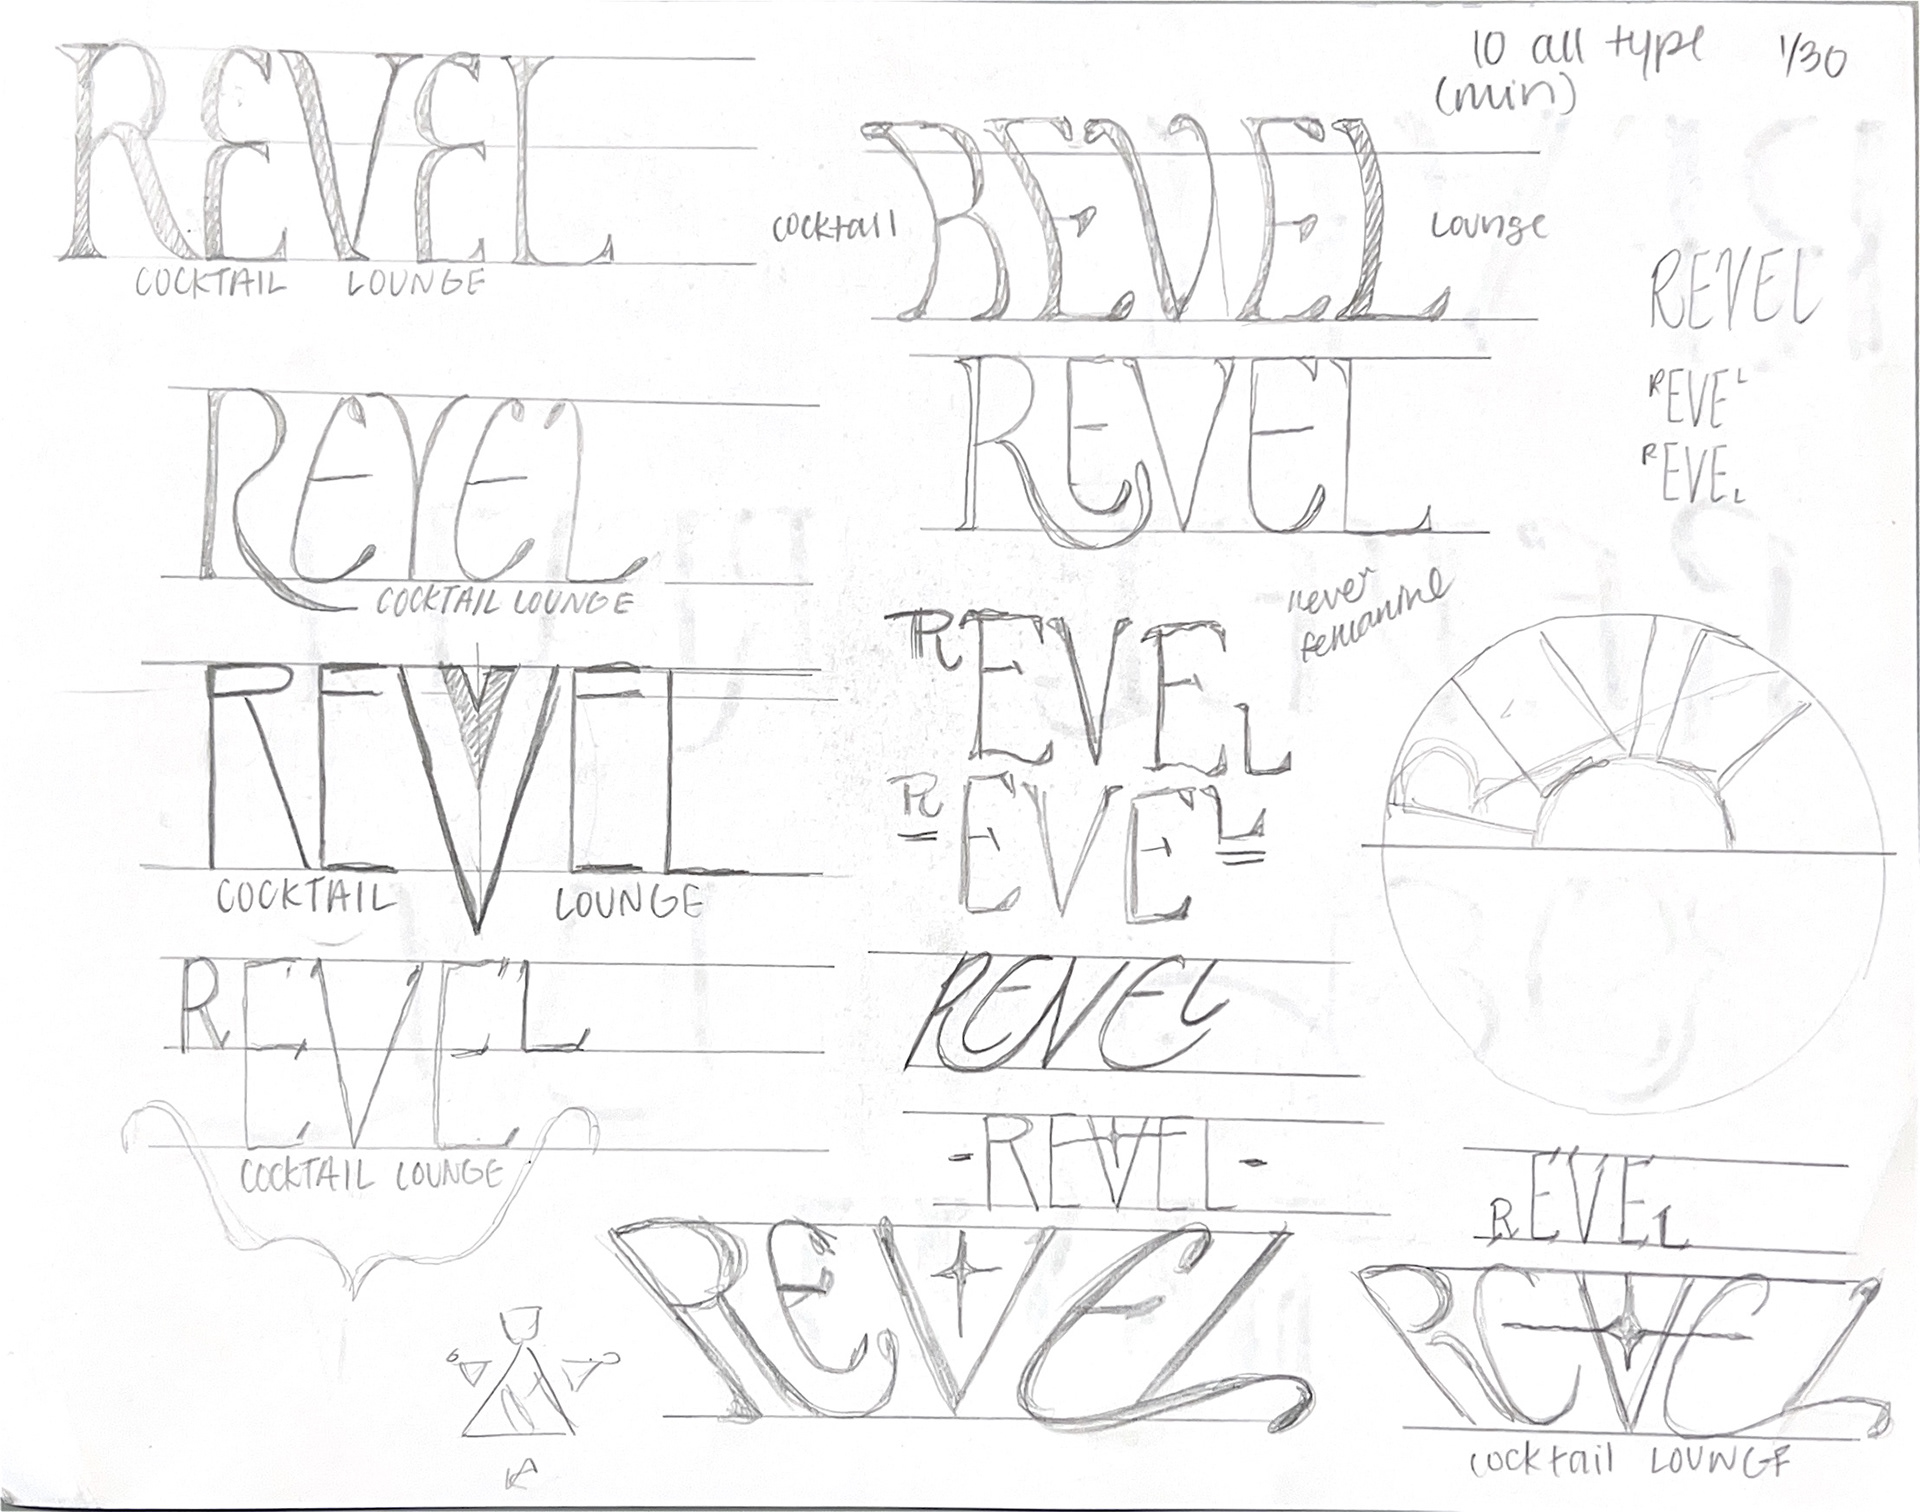 10 all type 1/30
(min)
REVEL
COCKTAIL LOUNGE
cocktail REVEL Lounge
REVEL
REVEL
REVEL
REVEL
REVEL
COCKTAIL LOUNGE
REVEL
never
femanine
REVEL
REVEL
COCKTAIL LOUNGE
REVEL
REVEL
COCKTAIL LOUNGE
REVEL
- REVEL -
REVEL
REVEL
REVEL
cocktail LOUNGE